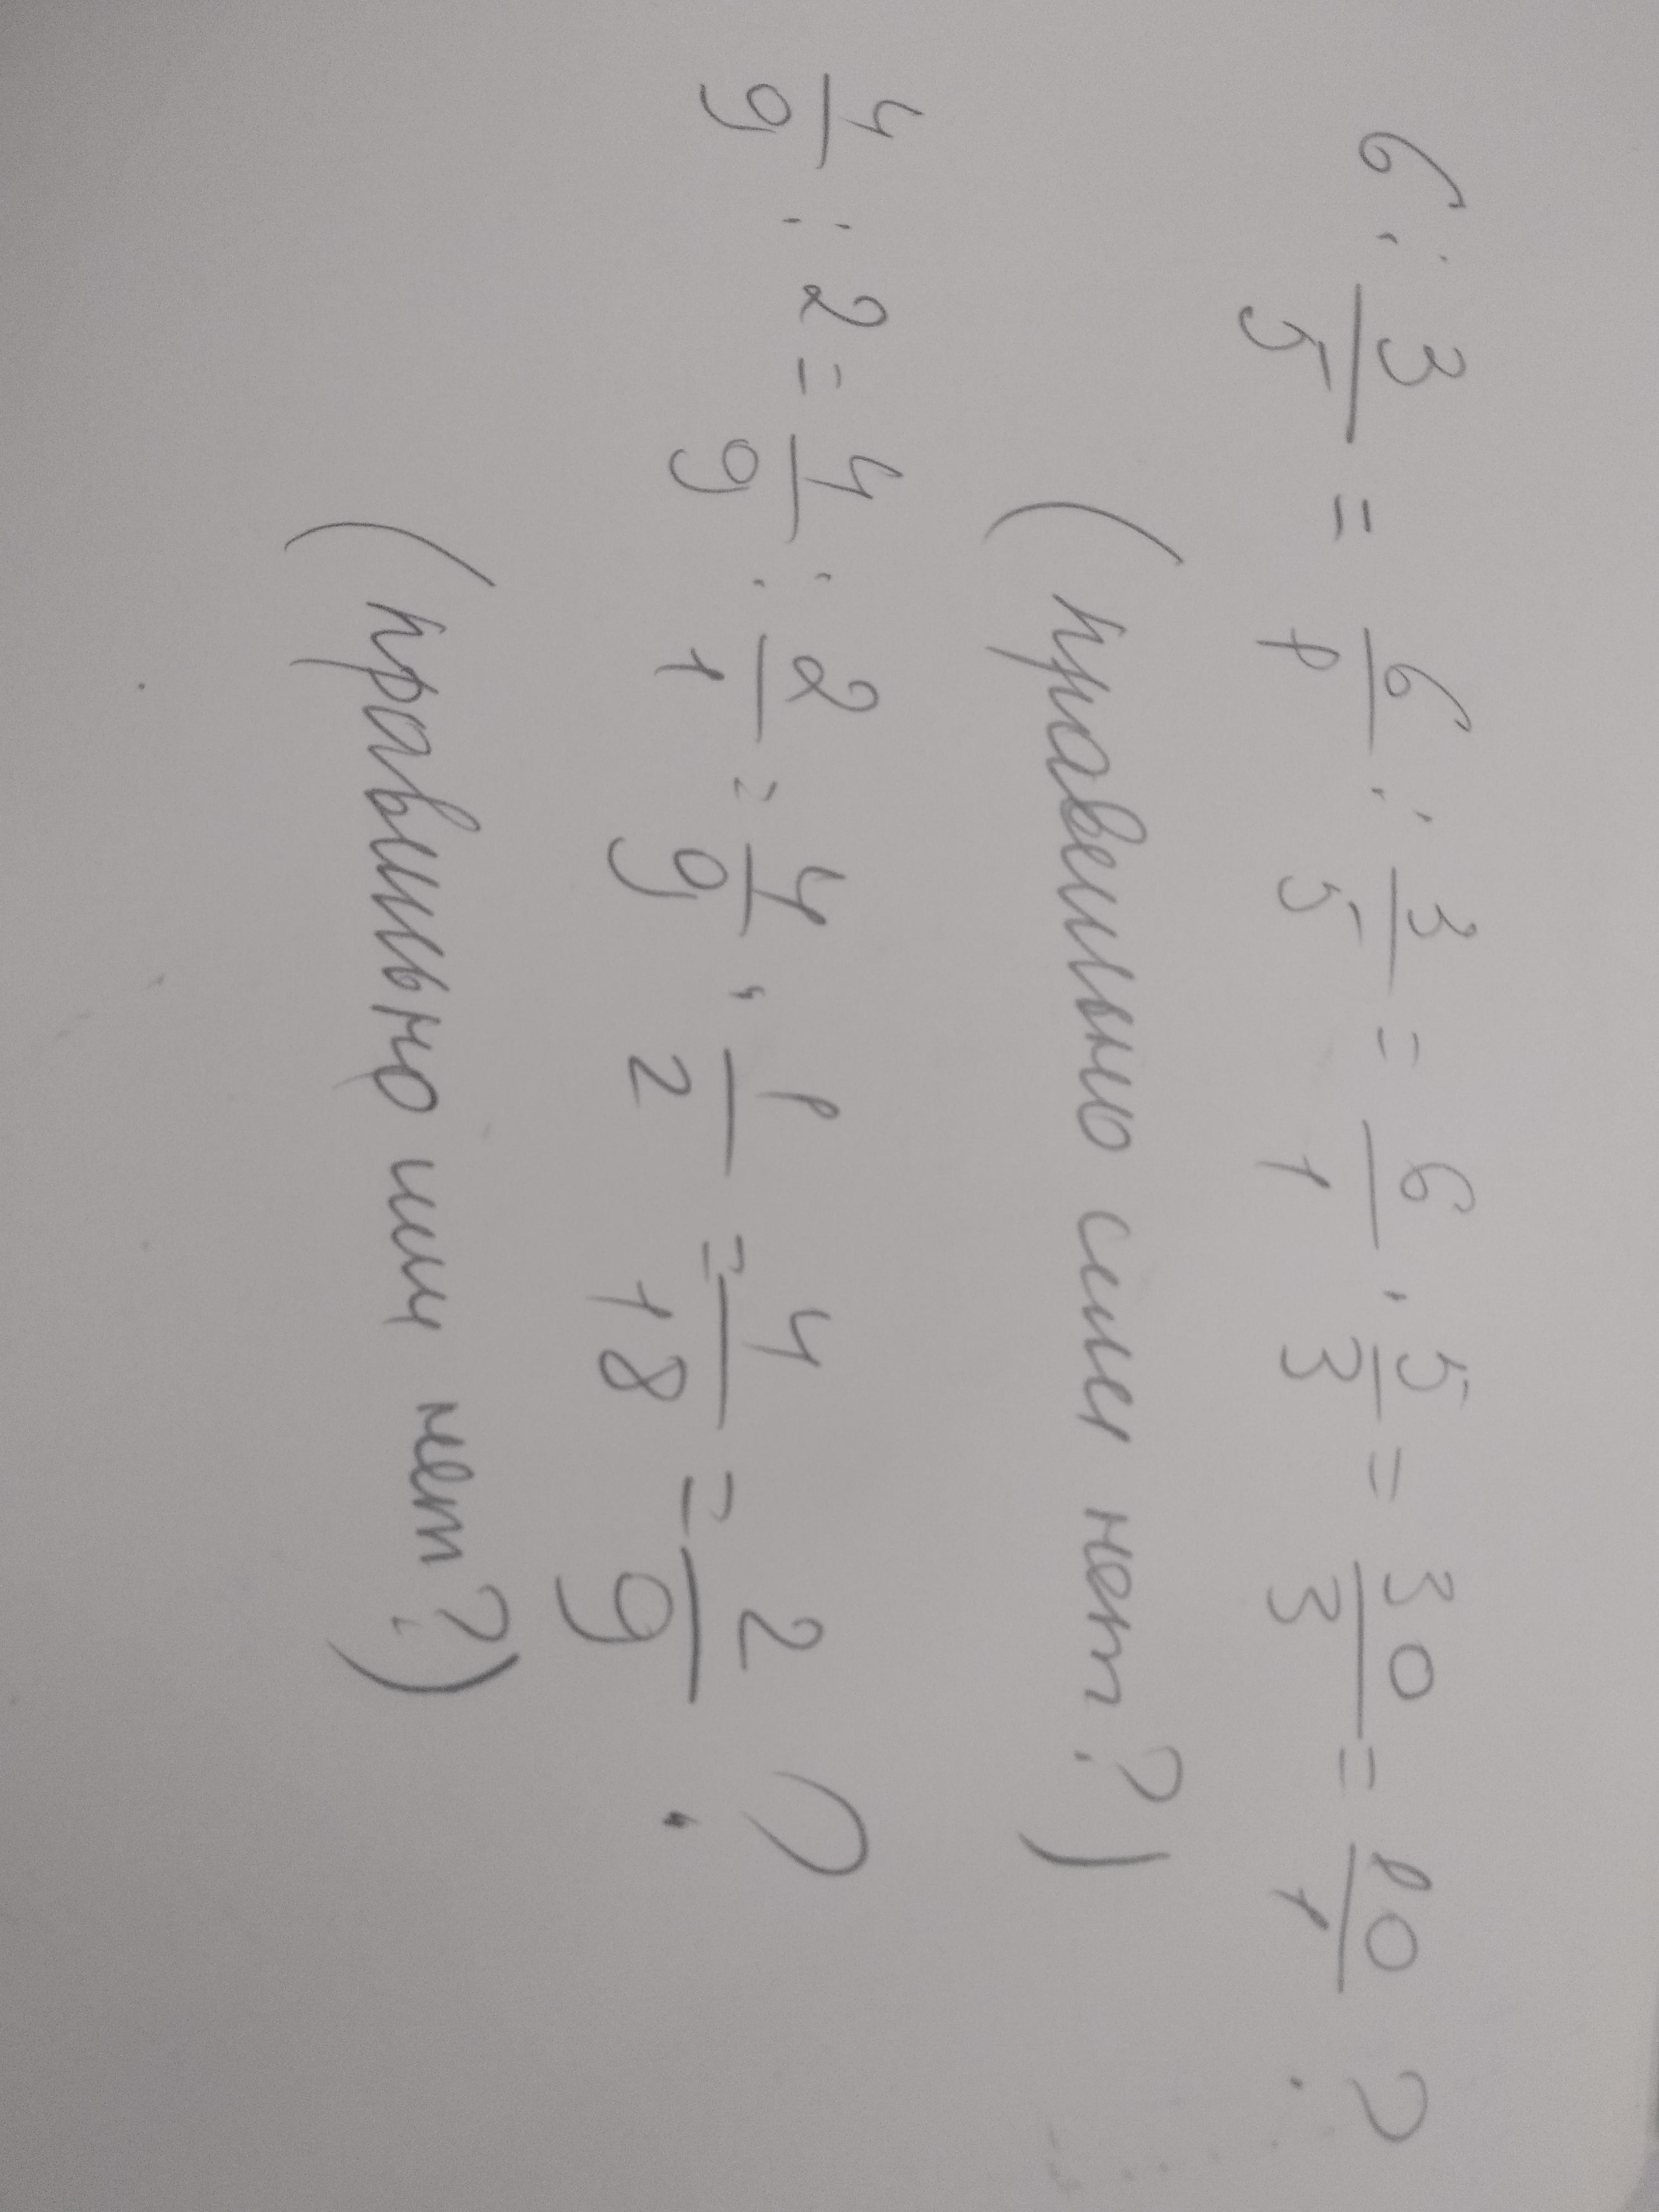 6 : 3/5 = 6/1 : 3/5 = 6/1 · 5/3 = 30/3 = 10/1 ?
(правильно или нет?)
4/9 : 2 = 4/9 : 2/1 = 4/9 · 1/2 = 4/18 = 2/9 ?
(правильно или нет?)